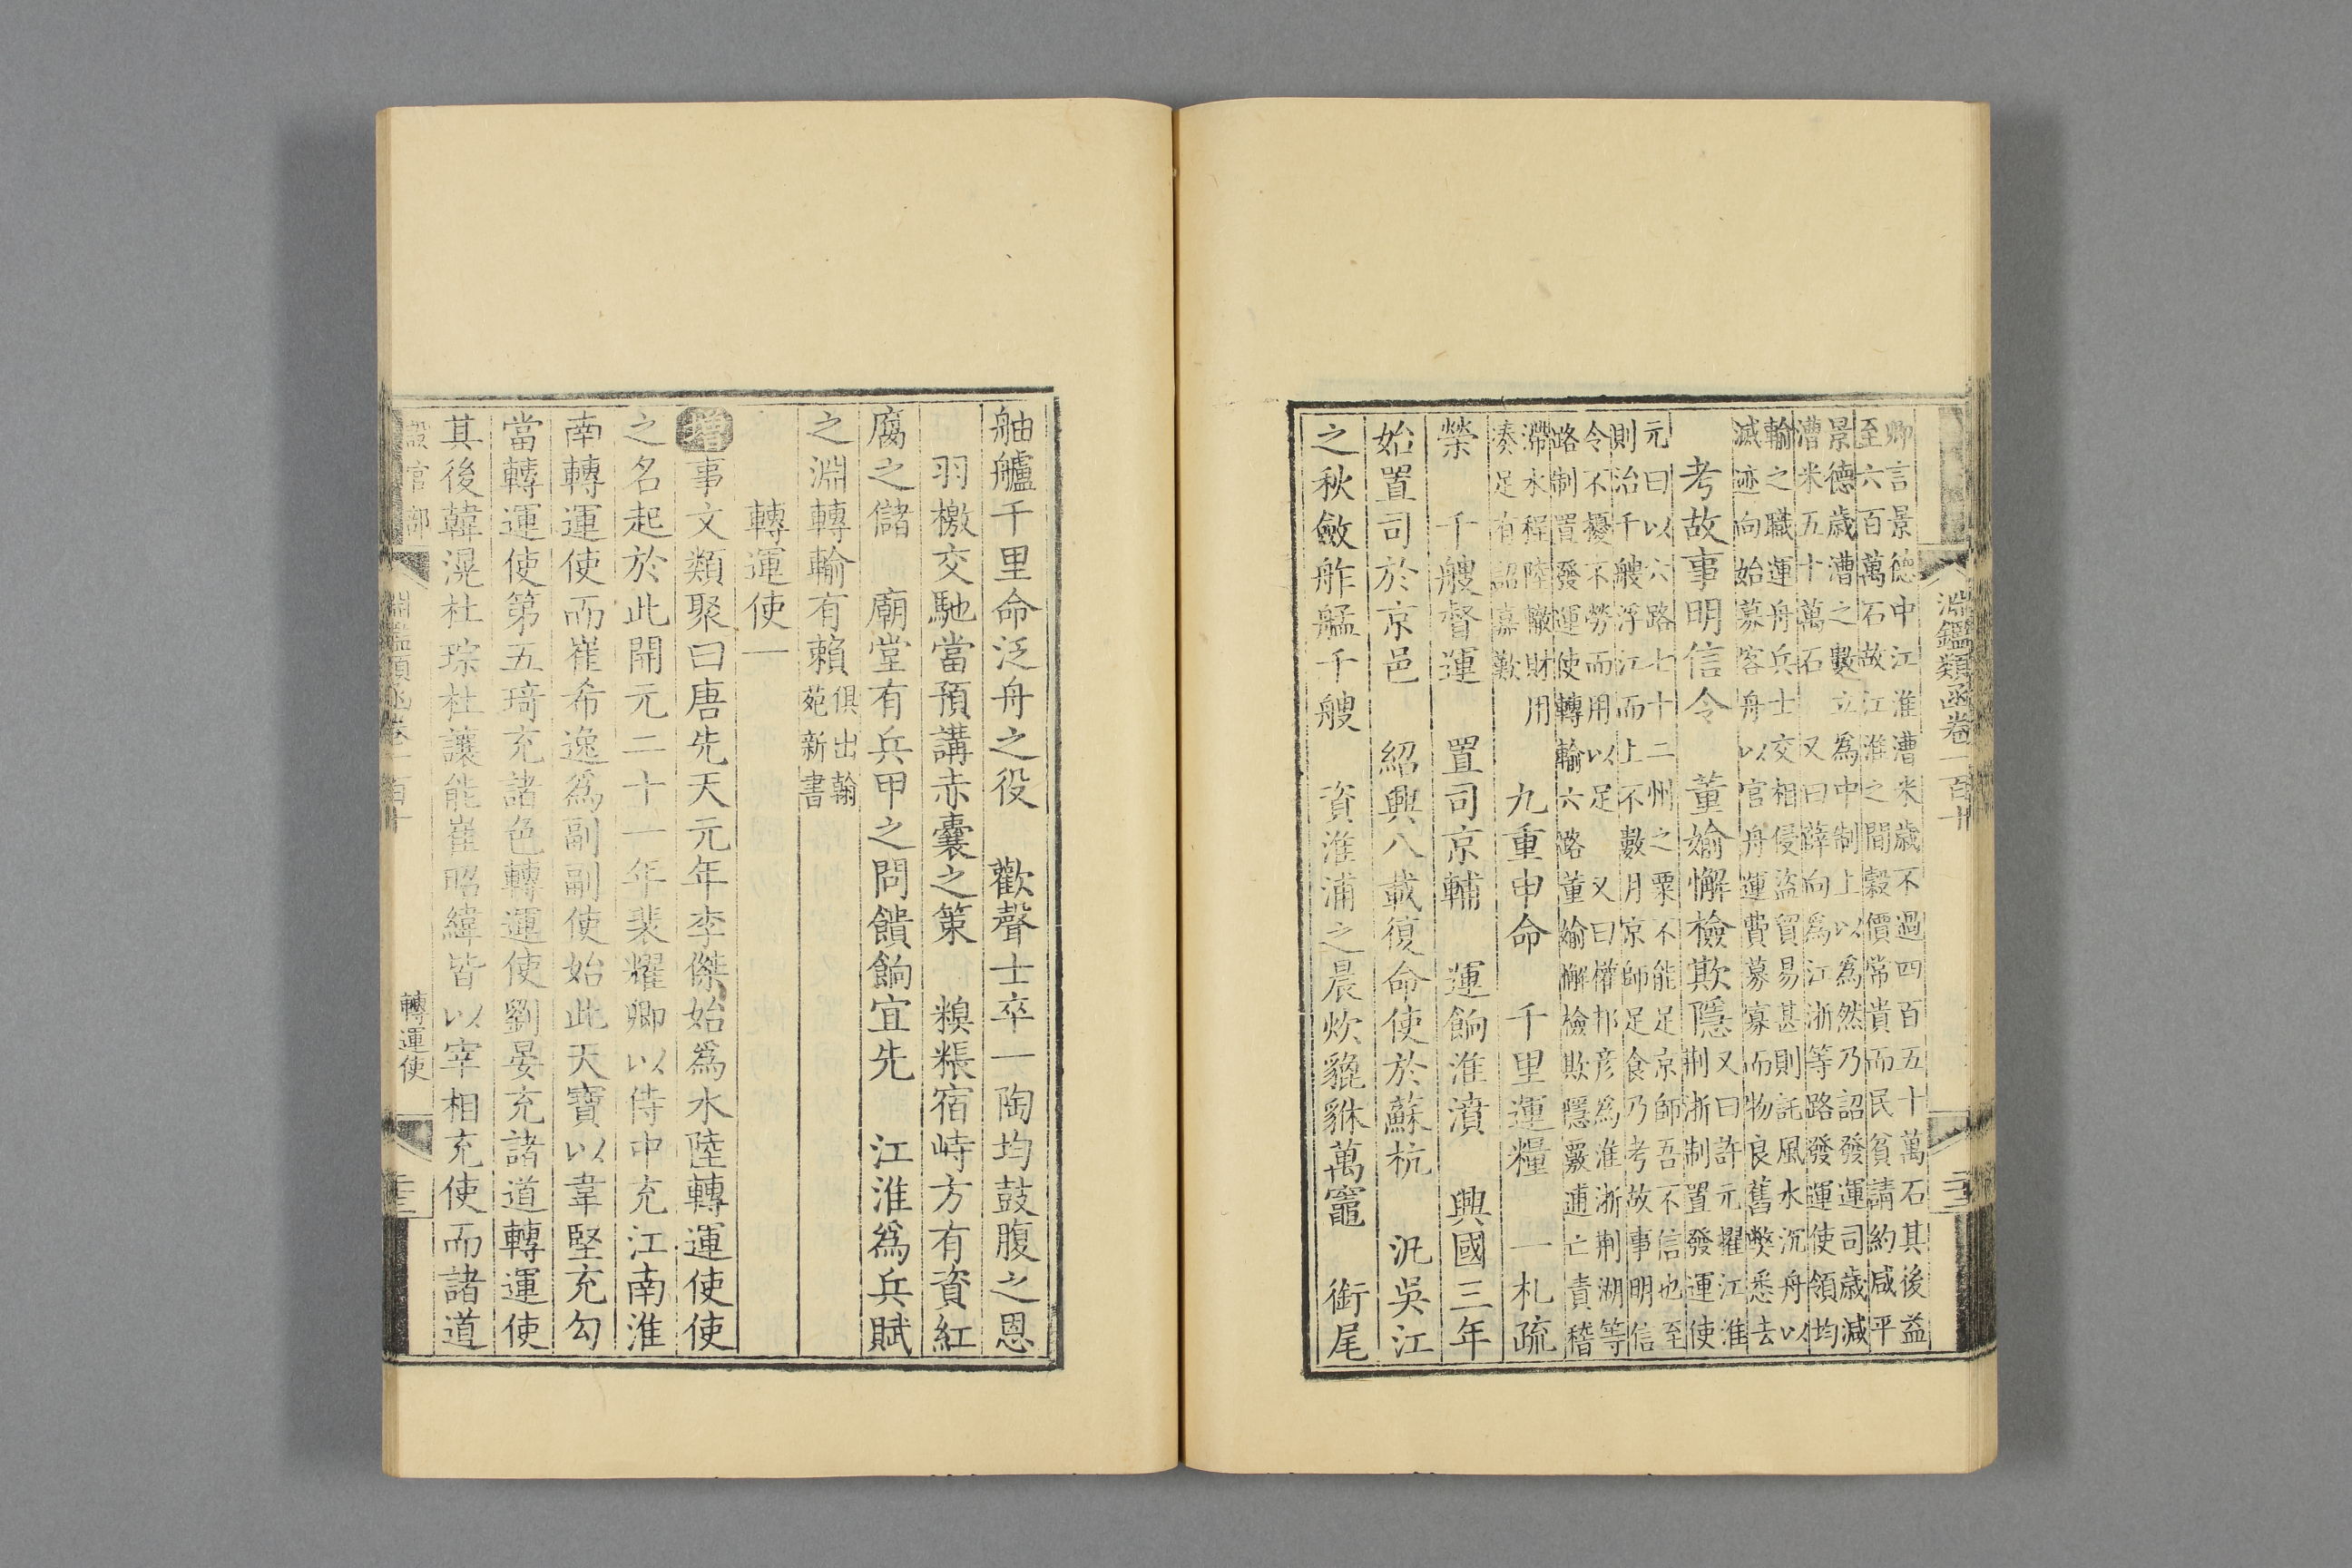 淵鑑類函卷一百十
卿言景德中江淮漕米歲不過四百五十萬石其後益
至六百萬石故江淮之間穀價常貴而民貧請約咸平
景德歲漕之數立為中制上以為然乃詔發運司歲減
漕米五十萬石 又曰薛向為江浙等路發運使領均
輸之職運舟兵士交相侵盜貿易甚則託風水沉舟以
滅迹向始募客舟以官舟運費募寡而物良舊弊悉去
考故事明信令 董媮懈檢欺隱
又曰許元擢江淮
荆浙制置發運使
元曰以六路七十二州之粟不能足京師吾不信也至
則治千艘浮江而上不數月京師足食乃考故事明信
令不擾不勞而用以足 又曰權邦彦為淮浙荆湖等
路制置發運使轉輸六路董媮懈檢欺隱覈逋亡責稽
滯水程陸轍財用
湊足有詔嘉歎
九重申命 千里運糧 一札疏
榮 千艘督運 置司京輔 運餉淮濆 興國三年
始置司於京邑 紹興八載復命使於蘇杭 汎吳江
之秋斂舴艋千艘 資淮浦之晨炊貔貅萬竈 銜尾
舳艫千里命泛舟之役 歡聲士卒一陶均鼓腹之恩
羽檄交馳當預講赤囊之策 糗粻宿峙方有資紅
腐之儲 廟堂有兵甲之問饋餉宜先 江淮爲兵賦
之淵轉輸有賴
俱出翰
苑新書
轉運使一
增事文類聚曰唐先天元年李傑始爲水陸轉運使使
之名起於此開元二十一年裴耀卿以侍中充江南淮
南轉運使而崔希逸爲副副使始此天寶以韋堅充勾
當轉運使第五琦充諸色轉運使劉晏充諸道轉運使
其後韓滉杜琮杜讓能崔昭緯皆以宰相充使而諸道
設官部
淵鑑類函卷一百十
轉運使